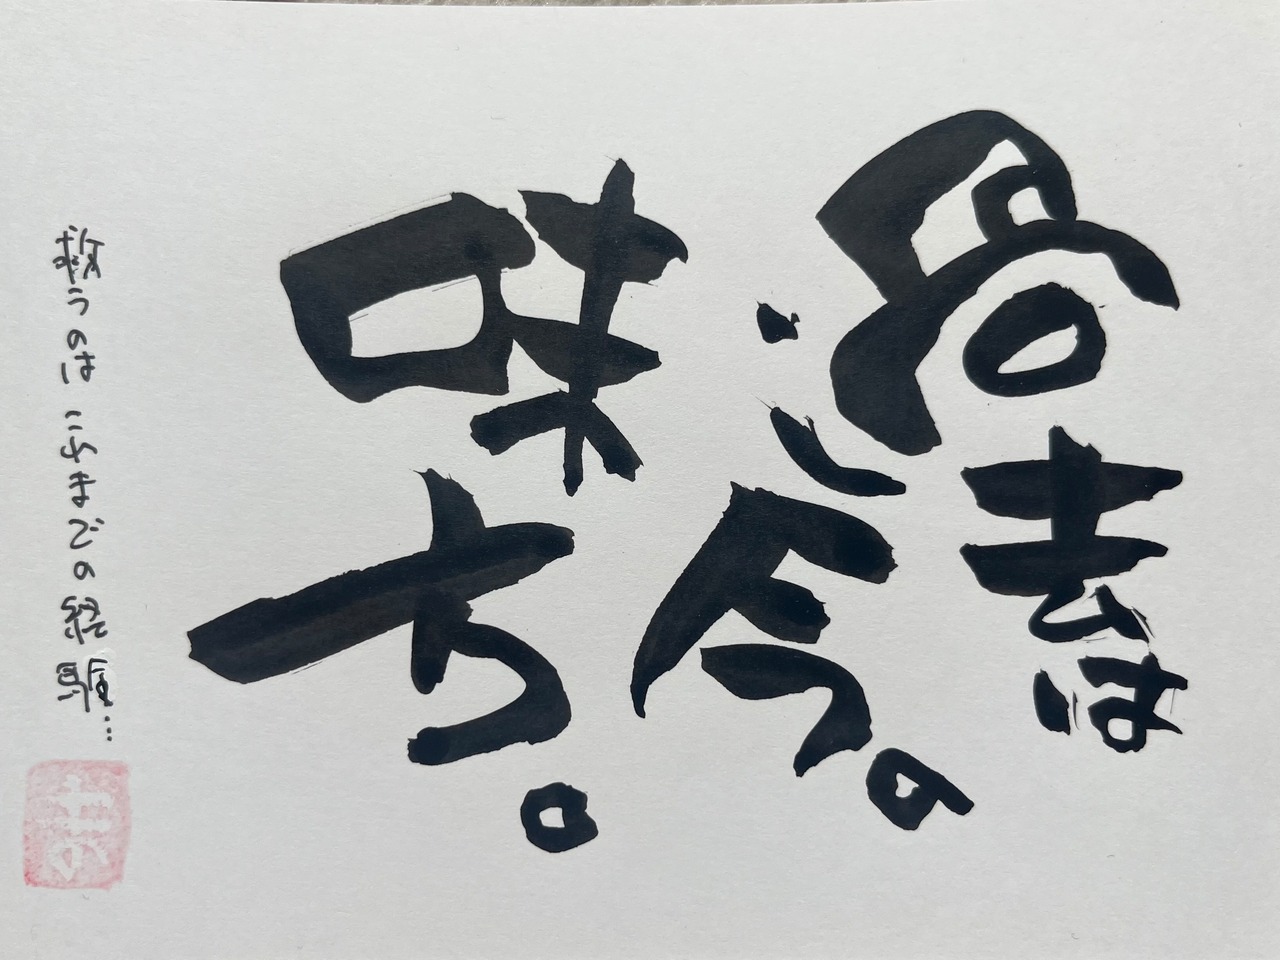 過去は
今の
味方。
救うのは これまでの経験…